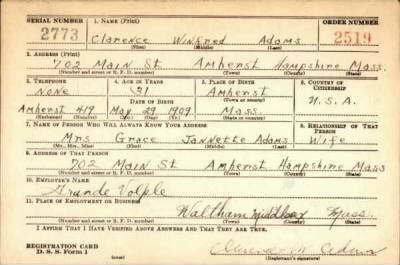 SERIAL NUMBER 1. NAME (Print) ORDER NUMBER
2773 Clarence Winfred Adams 2519
(First) (Middle) (Last)
2. ADDRESS (Print)
702 Main St. Amherst Hampshire Mass.
(Number and street or R. F. D. number) (Town) (County) (State)
3. TELEPHONE 4. AGE IN YEARS 5. PLACE OF BIRTH 6. COUNTRY OF CITIZENSHIP
None 31 Amherst
DATE OF BIRTH (Town or county) U.S.A.
Amherst 419 May 29 1909 Mass.
(Exchange) (Number) (Mo.) (Day) (Yr.) (State or country)
7. NAME OF PERSON WHO WILL ALWAYS KNOW YOUR ADDRESS 8. RELATIONSHIP OF THAT PERSON
Mrs Grace Jannette Adams Wife
(Mr., Mrs., Miss) (First) (Middle) (Last)
9. ADDRESS OF THAT PERSON
702 Main St Amherst Hampshire Mass
(Number and street or R. F. D. number) (Town) (County) (State)
10. EMPLOYER'S NAME
Grande Volple
11. PLACE OF EMPLOYMENT OR BUSINESS
Waltham Middlesex Mass.
(Number and street or R. F. D. number) (Town) (County) (State)
I AFFIRM THAT I HAVE VERIFIED ABOVE ANSWERS AND THAT THEY ARE TRUE.
REGISTRATION CARD Clarence W Adams
D. S. S. Form 1 (Registrant's signature)
(over)